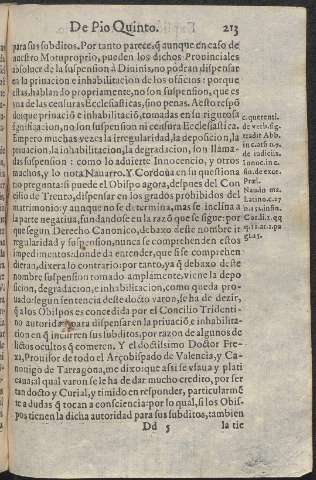 De Pio Quinto. 213
para sus subditos. Por tanto parece, q̃ aunque en caso de
nuestro Motuproprio, pueden los dichos Prouinciales
absoluer de la suspension à Diuinis, no podran dispensar
en la priuacion e inhabilitacion de los oficios: porque
estas, hablando propriamente, no son suspension, que es
vna de las censuras Ecclesiasticas, sino penas. A esto respõ
do: que priuaciõ e inhabilitaciõ, tomadas en su rigurosa
significacion, no son suspension ni censura Ecclesiastica.
Empero muchas vezes la irregularidad, la deposicion, la
priuacion, la inhabilitacion, la degradacion, son llama-
das suspension: como lo aduierte Innocencio, y otros
muchos, y lo nota Nauarro. Y Cordoua en su questiona
rio pregunta: si puede el Obispo agora, despues del Con
cilio de Trento, dispensar en los grados prohibidos del
matrimonio: y aunque no se determina, mas se inclina a
la parte negatiua, fundandose en la razõ que se sigue: por
que segun Derecho Canonico, debaxo deste nombre ir
regularidad y suspension, nunca se comprehenden estos
impedimentos: donde da entender, que si se comprehen
dieran, dixera lo contrario: por tanto, ya q̃ debaxo deste
nombre suspension tomado amplamente, viene la depo
sicion, degradacion, e inhabilitacion, como queda pro-
uado: segun sentencia deste docto varon, se ha de dezir,
q̃ a los Obispos es concedida por el Concilio Tridenti-
no autoridad para dispensar en la priuaciõ e inhabilita-
cion en q̃ incurren sus subditos, por razon de algunos de
lictos ocultos q̃ cometen. Y el doctissimo Doctor Fre-
xa, Prouisor de todo el Arçobispado de Valencia, y Ca-
nonigo de Tarragona, me dixo: que assi se vsaua y plati
caua; al qual varon se le ha de dar mucho credito, por ser
tan docto y Curial, y timido en responder, particularmẽ
te a dudas q̃ tocan a consciencia: por lo qual, si los Obis-
pos tienen la dicha autoridad para sus subditos, tambien
Dd 5 la tie
c. querenti.
de verb. sig.
tradit Abb.
in c. at si
de iudiciis.
Innoc. in c.
de exce.
Præl.
Nauar. ma.
Latino. c. 27
Cor. li. 1. qq